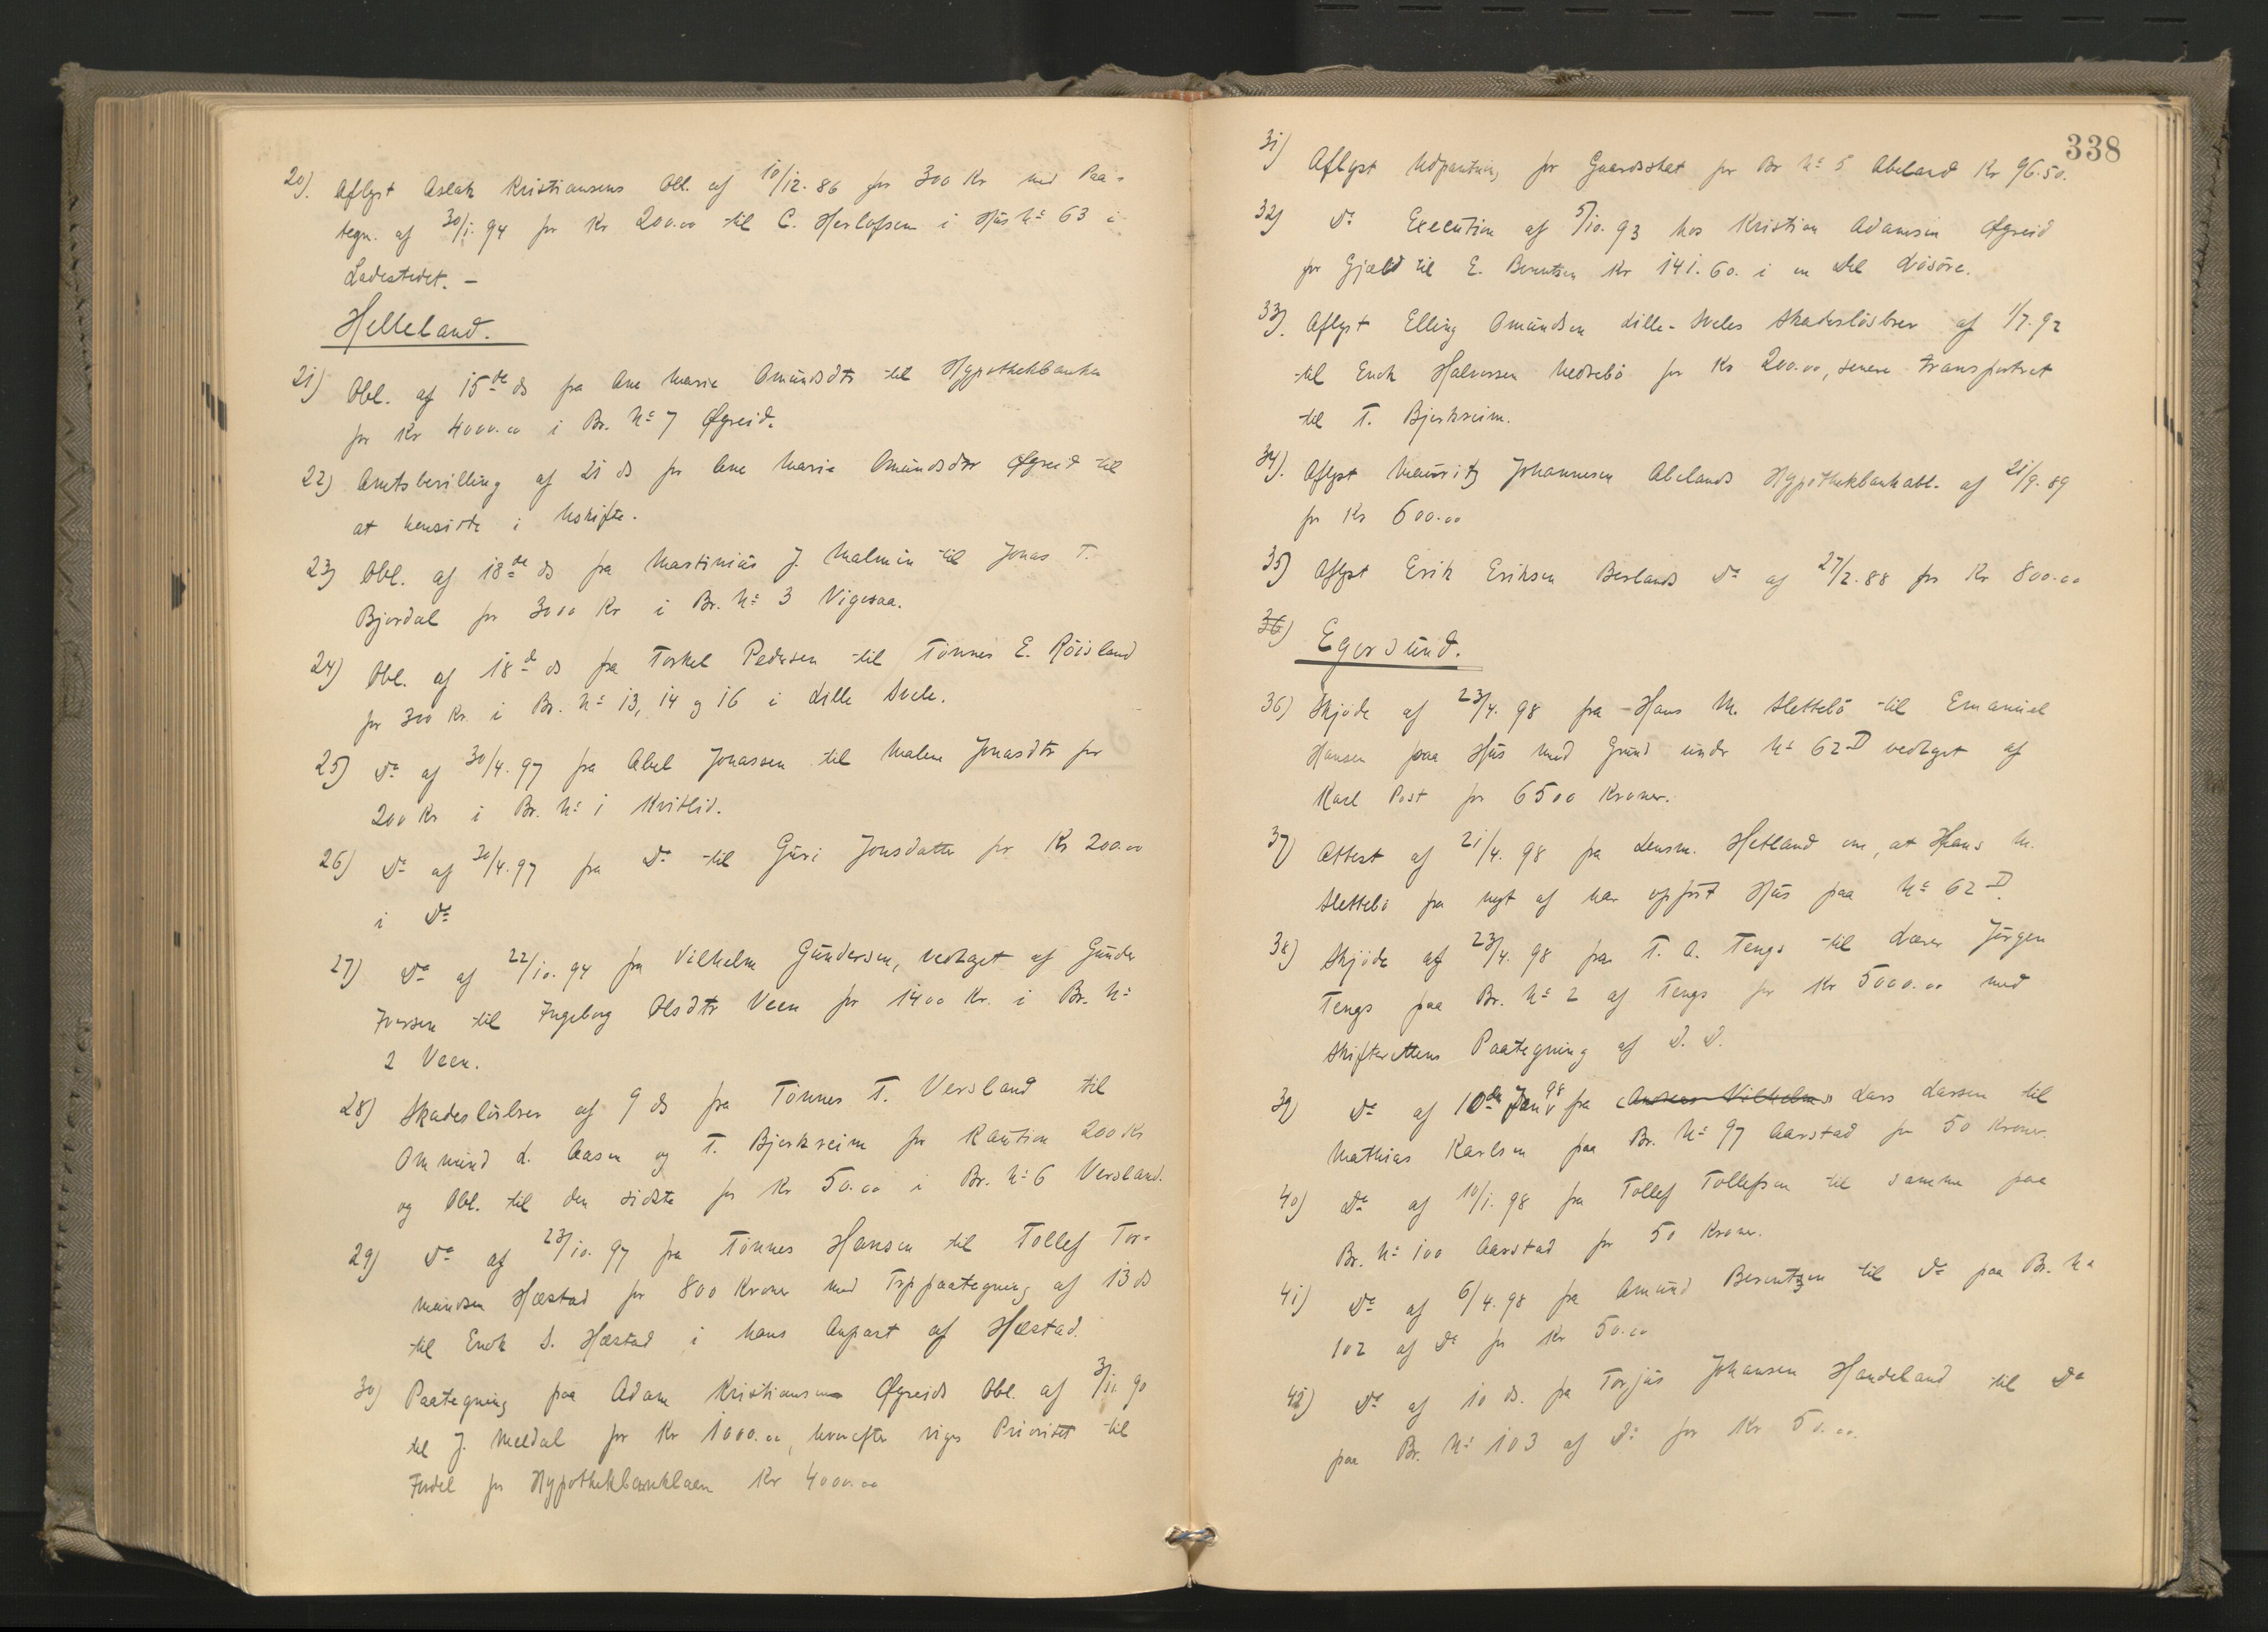 20). Aflyst Aslak Kristiansens Obl. af 10/12. 86 for 300 Kr med Paa-
tegn. af 30/1. 94 for Kr 200.00 til C. Herlofsen i Hus No 63 i
Ladestedet. –
Helleland.
21) Obl. af 15de ds fra Ane Marie Omundsdtr til Hypothekbanken
for Kr 4000.00 i Br. No 7 Øgreid.
22) Amtsbevilling af 21 ds for Ane Marie Omundsdtr Øgreid til
at hensidde i Uskifte.
23) Obl. af 18de ds fra Martinius J. Malmin til Jonas T.
Bjordal for 3000 Kr i Br. No 3 Vigesaa.
24) Obl. af 18de ds fra Torkel Pedersen til Tönnes E. Röisland
for 300 Kr. i Br. No 13, 14 og 16 i Lille Svele.
25) Do af 30/4. 97 fra Abel Jonassen til Malene Jonasdtr for
200 Kr i Br. No 1 Kvitlid.
26) Do af 30/4. 97 fra Do til Guri Jonsdatter for Kr 200.00
i Do
27) Do af 22/10. 94 fra Vilhelm Gundersen, vedtaget af Gunder
Iversen til Ingeborg Olsdtr Veen for 1400 Kr. i Br. No
2 Veen.
28) Skadeslösbrev af 9 ds fra Tönnes T. Versland til
Ommund L. Aasen og T. Bjerkreim for Kaution 200 Kr
og Obl. til den sidste for Kr 50.00 i Br. No 6 Versland.
29) Do af 23/10. 97 fra Tönnes Hansen til Tollef Tor-
mundsen Hæstad for 800 Kroner med Trppaategning af 13 ds
til Enok S. Hæstad i hans Anpart af Hæstad.
30) Paategning paa Adam Kristiansens Øgreids Obl. af 3/11. 90
til J. Meldal for Kr 1000.00, hvorefter viges Prioritet til
Fordel for Hypothekbanklaan Kr 4000.00
338
31) Aflyst Udpantning for Gaardsskat for Br No 5 Abeland Kr 96.50.
32) Do Execution af 5/10. 93 hos Kristian Adamsen Øgreid
for Gjæld til E. Berentsen Kr 141.60. i en Del Lösöre.
33). Aflyst Elling Omundsen Lille-Sveles Skadeslösbrev af 1/7. 92
til Enok Halvorsen Nedrebö for Kr 200.00, senere transporteret
til T. Bjerkreim.
34). Aflyst Mauritz Johannesen Abelands Hypothekbankobl. af 21/9. 89
for Kr 600.00
35) Aflyst Erik Eriksen Berlands Do af 27/2. 88 for Kr 800.00
36) Egersund.
36) Skjöde af 23/4. 98 fra Hans M. Slettebö til Emanuel
Hansen paa Hus med Grund under No 62 D vedtaget af
Karl Post for 6500 Kroner.
37) Attest af 21/4. 98 fra Lensm. Hetland om, at Hans M.
Slettebö fra nyt af har opfört Hus paa No 62 D.
38) Skjöde af 23/4. 98 fra T. A. Tengs til Lærer Jörgen
Tengs paa Br. No 2 af Tengs for Kr 5000.00 med
Skifterettens Paategning af D. D.
39) Do af 10de Janv 98 fra Andreas Vilhelms Lars Larsen til
Mathias Karlsen paa Br. No 97 Aarstad for 50 Kroner.
40) Do af 10/1. 98 fra Tollef Tollefsen til samme paa
Br. No 100 Aarstad for 50 Kroner.
41) Do af 6/4. 98 fra Amund Berentzen til Do paa Br. No
102 af Do for Kr 50.00
42) Do af 10 ds. fra Torjus Johansen Handeland til Do
paa Br. No 103 af Do for Kr 50.00.